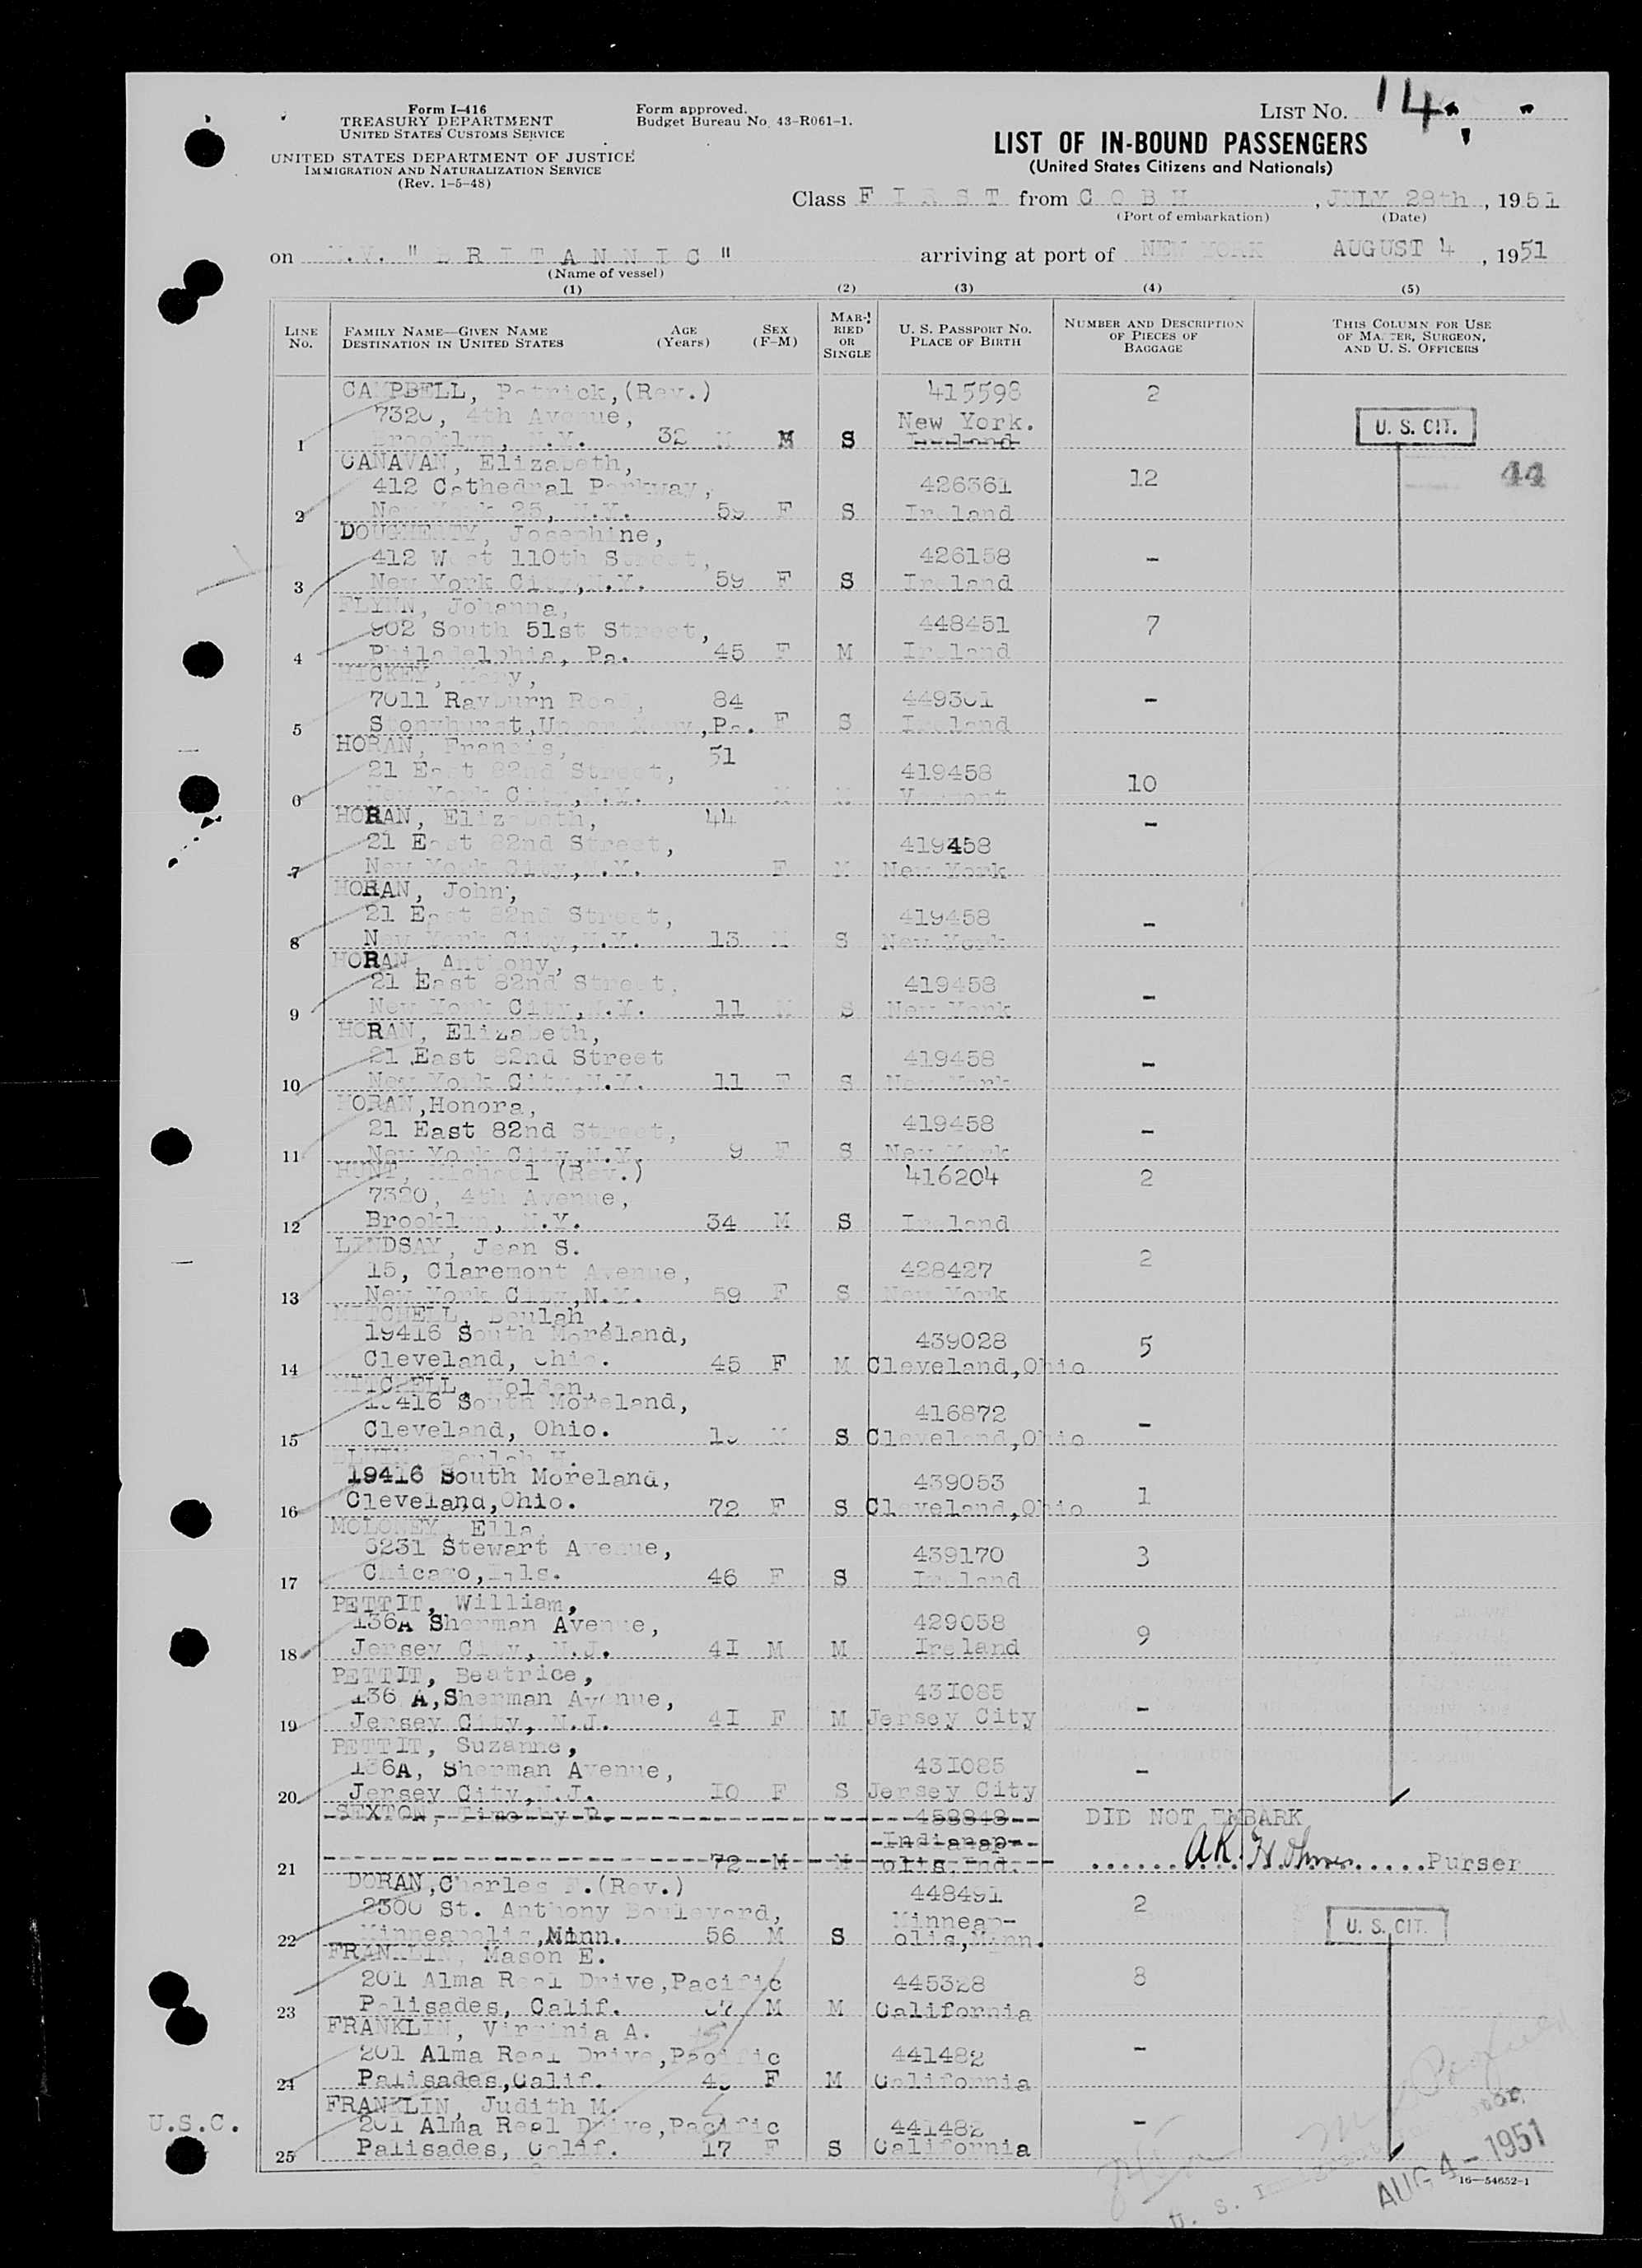 Form I-416
TREASURY DEPARTMENT
UNITED STATES CUSTOMS SERVICE
UNITED STATES DEPARTMENT OF JUSTICE
IMMIGRATION AND NATURALIZATION SERVICE
(Rev. 1-5-48)
Form approved.
Budget Bureau No. 43-R061-1.
LIST NO. 14
LIST OF IN-BOUND PASSENGERS
(United States Citizens and Nationals)
Class FIRST from COBH, JULY 28th, 1951
(Port of embarkation) (Date)
on M.V. "BRITANNIC" arriving at port of NEW YORK AUGUST 4, 1951
(Name of vessel)
(1) (2) (3) (4) (5)
LINE No. FAMILY NAME—GIVEN NAME DESTINATION IN UNITED STATES AGE (Years) SEX (F-M) MARRIED OR SINGLE U. S. PASSPORT NO. PLACE OF BIRTH NUMBER AND DESCRIPTION OF PIECES OF BAGGAGE THIS COLUMN FOR USE OF MASTER, SURGEON, AND U. S. OFFICERS
CAMPBELL, Patrick, (Rev.) 415598 2
7320, 4th Avenue, New York. U. S. CIT.
1 Brooklyn, N.Y. 32 M M S Ireland
CANAVAN, Elizabeth, 44
412 Cathedral Parkway, 426361 12
2 New York 25, N.Y. 59 F S Ireland
DOUGHERTY, Josephine,
412 West 110th Street, 426158 -
3 New York City, N.Y. 59 F S Ireland
FLYNN, Johanna,
902 South 51st Street, 448451 7
4 Philadelphia, Pa. 45 F M Ireland
HICKEY, Mary,
7011 Rayburn Road, 84 449301 -
5 Stonyhurst, Upper Pa. F S Ireland
HORAN, Francis, 51
21 East 82nd Street, 419458 10
6 New York City, N.Y. M M Vermont
HORAN, Elizabeth, 44 -
21 East 82nd Street, 419458
7 New York City, N.Y. F M New York
HORAN, John,
21 East 82nd Street, 419458 -
8 New York City, N.Y. 13 M S New York
HORAN, Anthony,
21 East 82nd Street, 419458 -
9 New York City, N.Y. 11 M S New York
HORAN, Elizabeth,
21 East 82nd Street 419458 -
10 New York City, N.Y. 11 F S New York
HORAN, Honora,
21 East 82nd Street, 419458 -
11 New York City, N.Y. 9 F S New York
HUNT, Michael (Rev.) 416204 2
7320, 4th Avenue,
12 Brooklyn, N.Y. 34 M S Ireland
LINDSAY, Jean S. 2
15, Claremont Avenue, 428427
13 New York City, N.Y. 59 F S New York
MITCHELL, Beulah,
19416 South Moreland, 439028 5
14 Cleveland, Ohio. 45 F M Cleveland, Ohio
MITCHELL, Holden,
19416 South Moreland, 416872 -
15 Cleveland, Ohio. M S Cleveland, Ohio
Beulah H.
19416 South Moreland, 439053 1
16 Cleveland, Ohio. 72 F S Cleveland, Ohio
MOLONEY, Ella,
6231 Stewart Avenue, 439170 3
17 Chicago, Ills. 46 F S Ireland
PETTIT, William,
136A Sherman Avenue, 429058 9
18 Jersey City, N.J. 41 M M Ireland
PETTIT, Beatrice,
136 A, Sherman Avenue, 431085 -
19 Jersey City, N.J. 41 F M Jersey City
PETTIT, Suzanne,
136A, Sherman Avenue, 431085 -
20 Jersey City, N.J. 10 F S Jersey City
SEXTON, Timothy 458848 DID NOT EMBARK
Indianap-
21 72 M M olis, Ind. Purser
DORAN, Charles F. (Rev.) 448491 2
2300 St. Anthony Boulevard, Minneap- U. S. CIT.
22 Minneapolis, Minn. 56 M S olis, Minn.
FRANKLIN, Mason E.
201 Alma Real Drive, Pacific 445328 8
23 Palisades, Calif. M M California
FRANKLIN, Virginia A.
201 Alma Real Drive, Pacific 441482 -
24 Palisades, Calif. F M California
FRANKLIN, Judith M.
U.S.C. 201 Alma Real Drive, Pacific 441482 -
25 Palisades, Calif. 17 F S California
U. S.
AUG 4 - 1951
16—54652-1